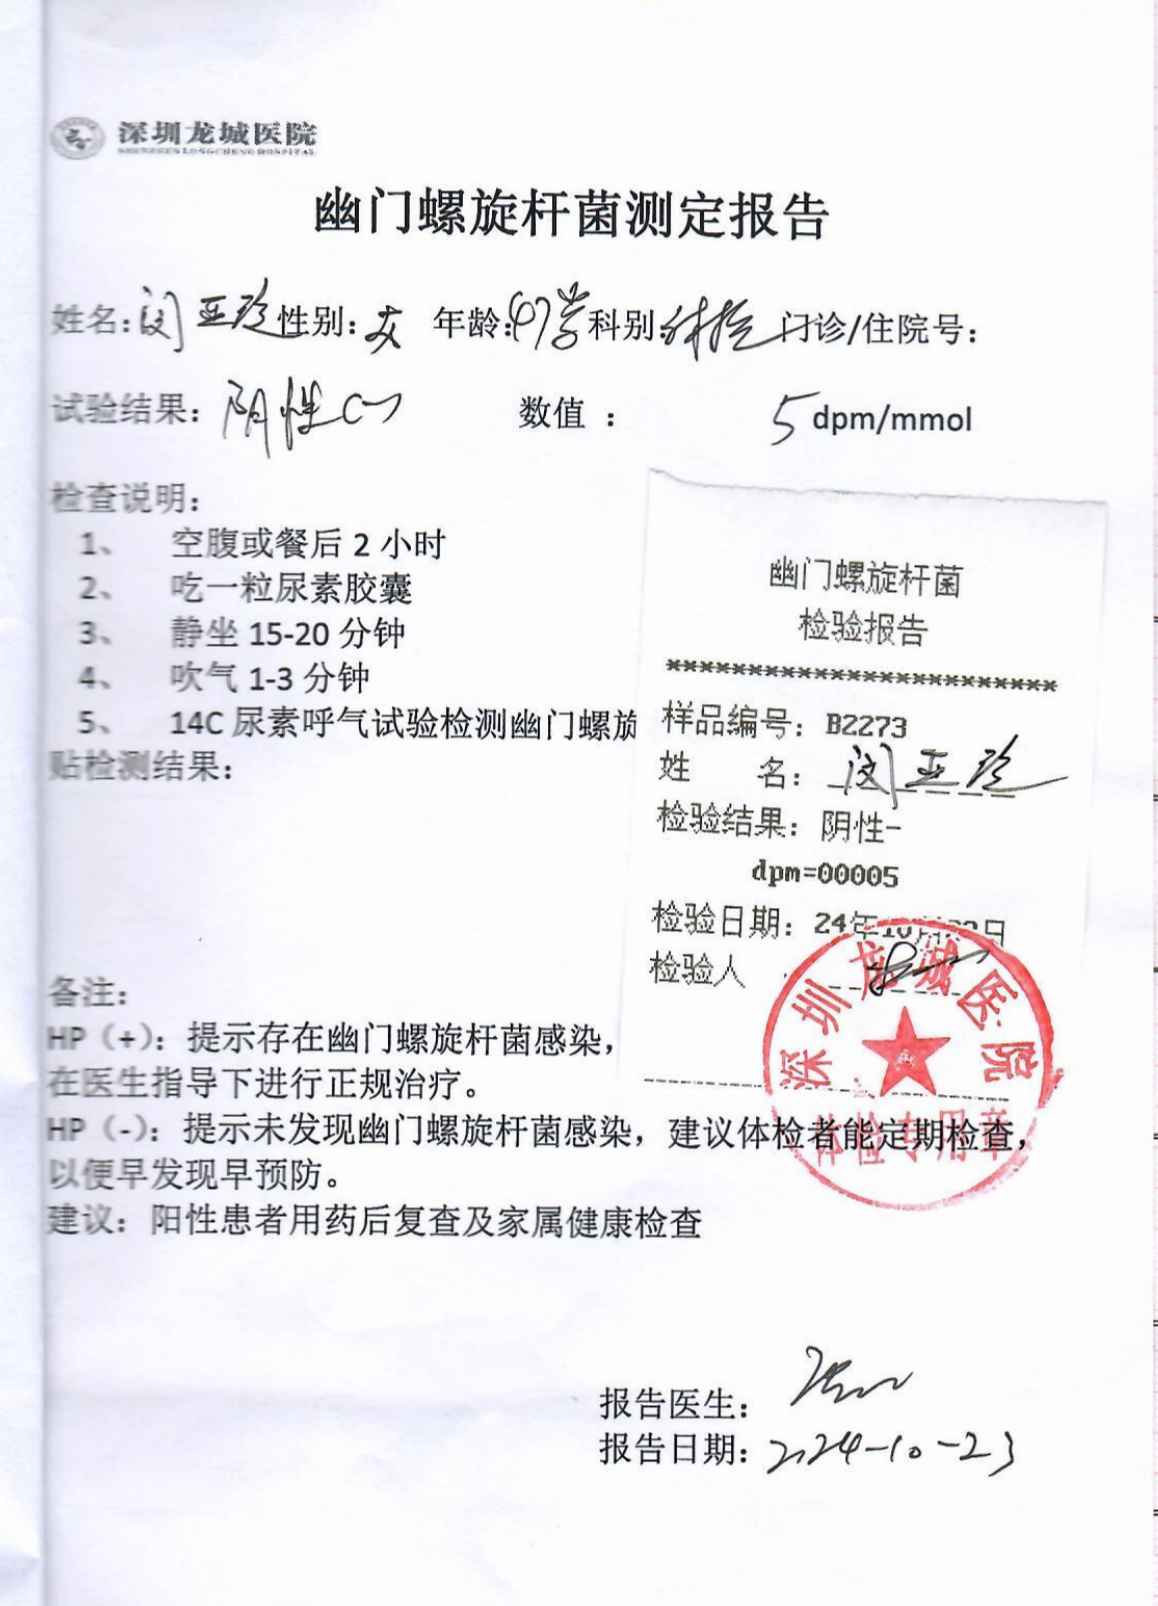 深圳龙城医院
SHENZHEN LONGCHENG HOSPITAL
幽门螺旋杆菌测定报告
姓名:闵亚玲 性别:女 年龄:47岁 科别:体检 门诊/住院号:
试验结果:阴性(-) 数值 : 5 dpm/mmol
检查说明:
1、 空腹或餐后 2 小时
2、 吃一粒尿素胶囊
3、 静坐 15-20 分钟
4、 吹气 1-3 分钟
5、 14C 尿素呼气试验检测幽门螺旋
贴检测结果:
幽门螺旋杆菌
检验报告
************************
样品编号: B2273
姓 名: 闵亚玲
检验结果: 阴性-
dpm=00005
检验日期: 24年10月 日
检验人
深圳龙城医院
体检专用章
备注:
HP(+):提示存在幽门螺旋杆菌感染,
在医生指导下进行正规治疗。
HP(-):提示未发现幽门螺旋杆菌感染,建议体检者能定期检查,
以便早发现早预防。
建议:阳性患者用药后复查及家属健康检查
报告医生:
报告日期:2024-10-23